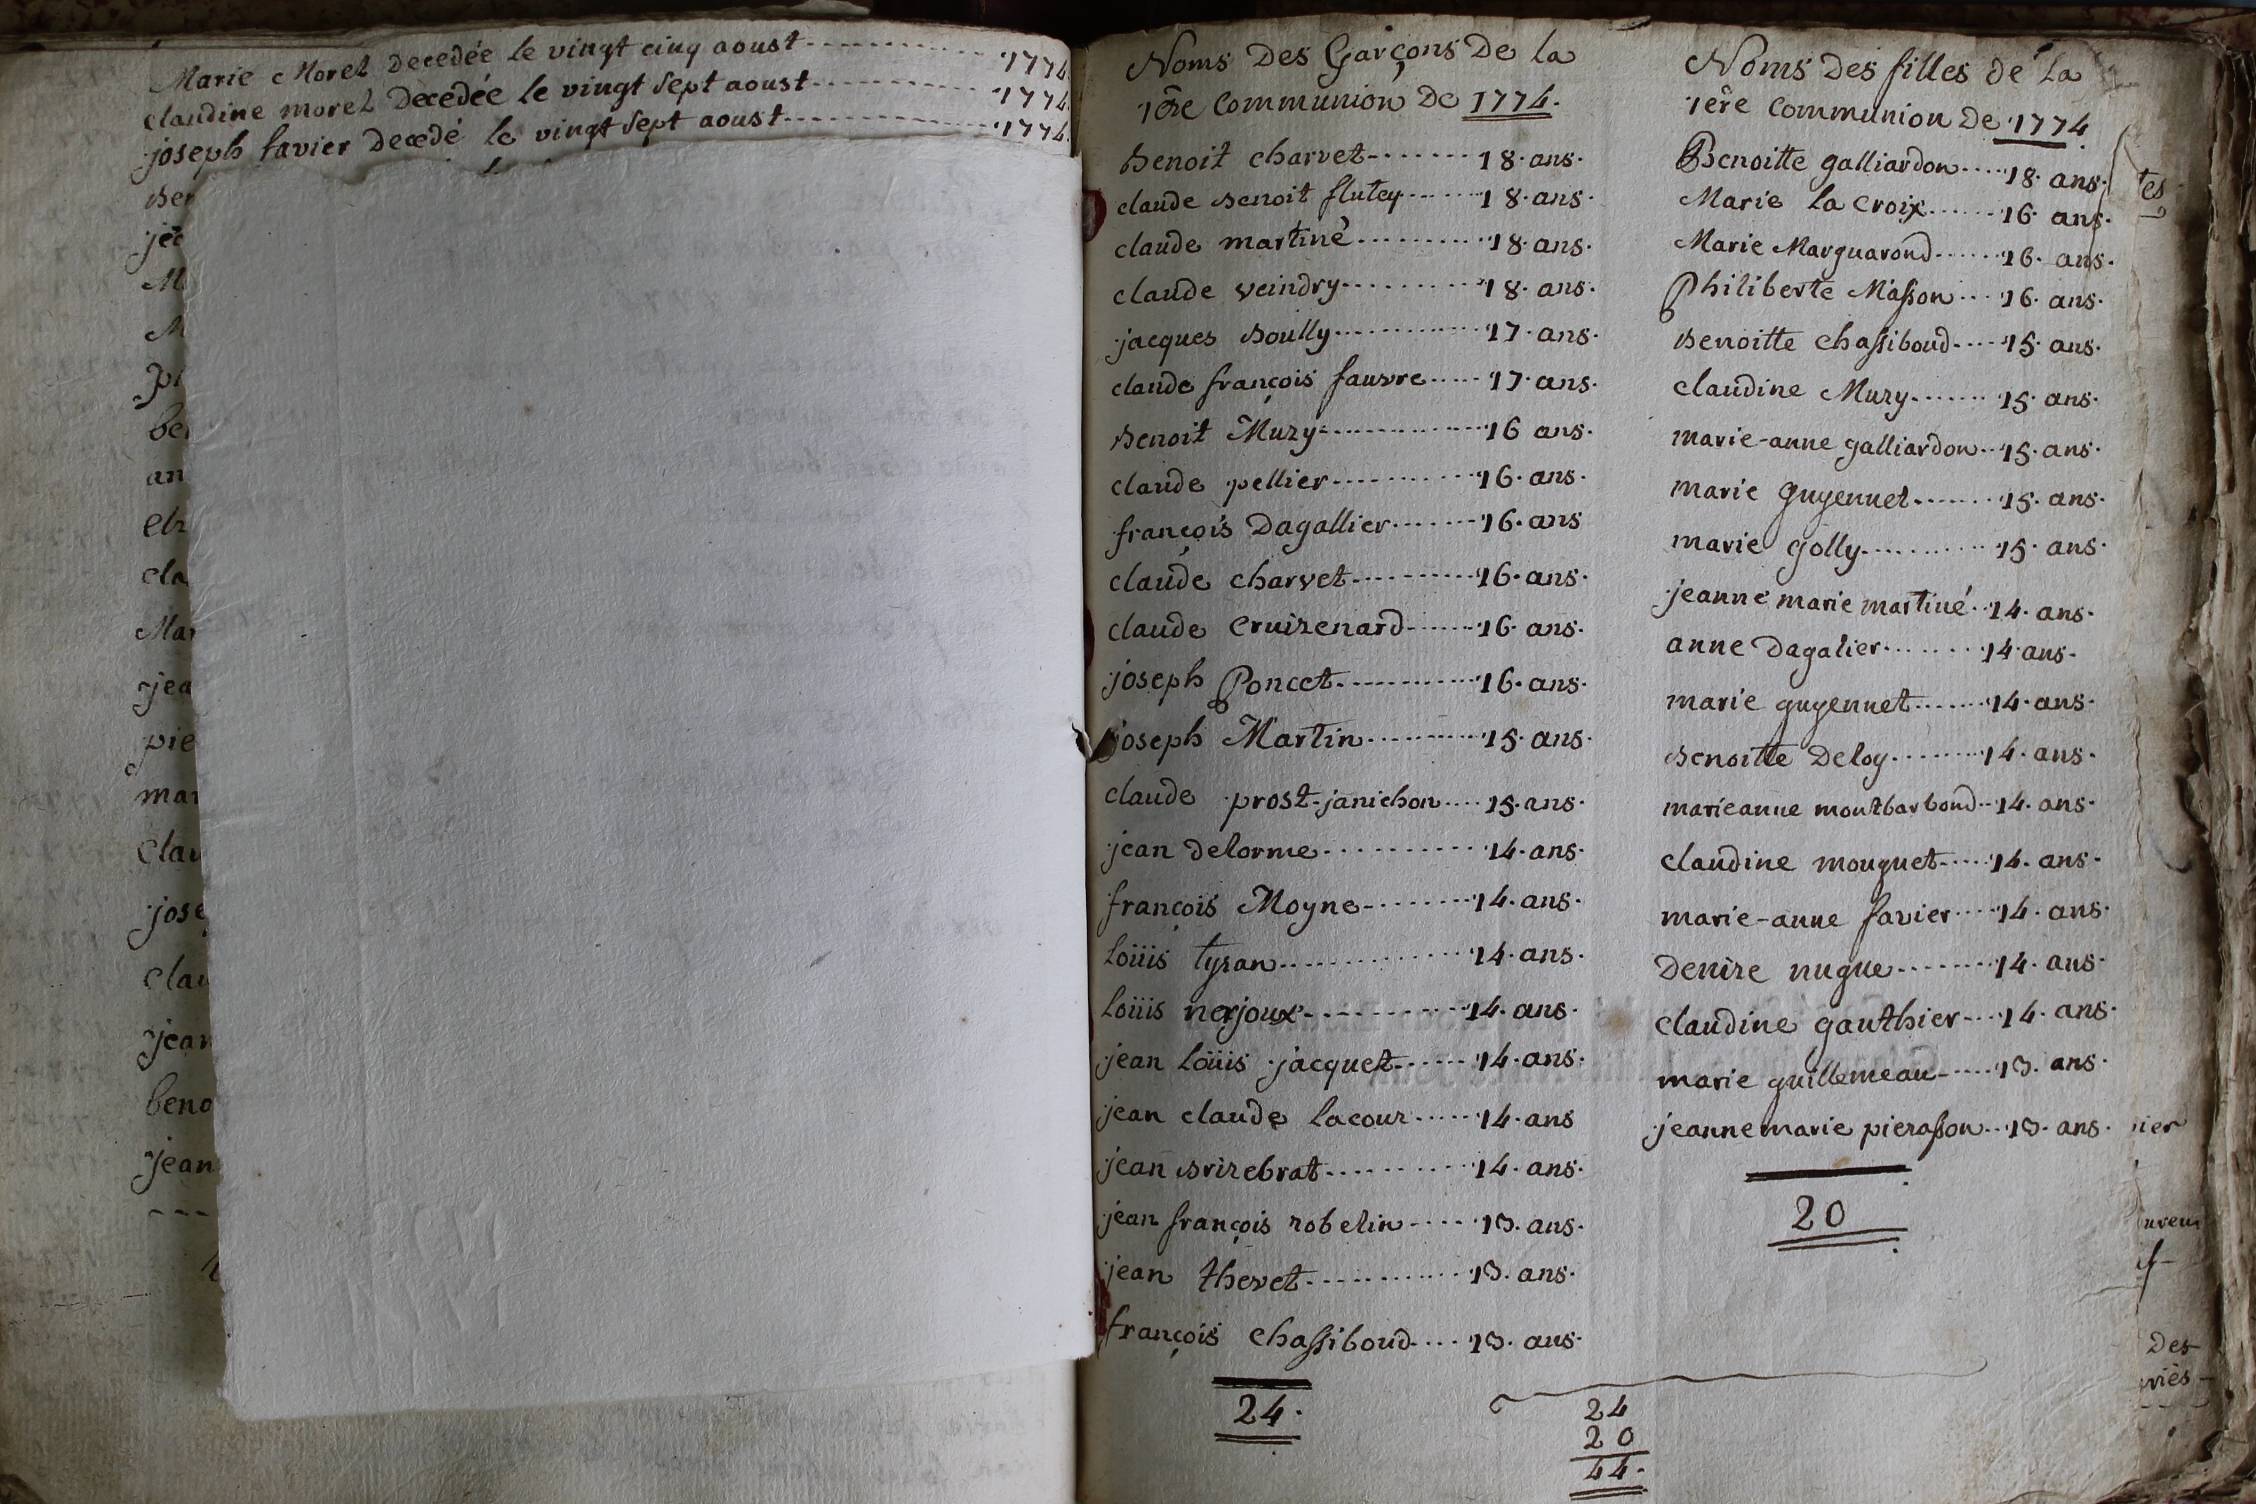 Marie Morel Decedée le vingt cinq aoust 1774
claudine morel Decedée le vingt sept aoust 1774
joseph favier Decedé le vingt sept aoust 1774
Noms Des Garçons De la
1ère Communion De 1774.
Benoit charvet 18. ans.
claude Benoit flutey 18. ans.
claude martiné 18. ans.
claude veindry 18. ans.
jacques Boully 17. ans.
claude françois fauvre 17. ans.
Benoit Muzy 16 ans.
claude pellier 16. ans.
françois Dagallier 16. ans
claude charvet 16. ans.
claude cruizenard 16. ans.
joseph Poncet 16. ans.
joseph Martin 15. ans.
claude prost-janichon 15. ans.
jean delorme 14. ans.
françois Moyne 14. ans.
loüis tyran 14. ans.
loüis nerjoux 14. ans.
jean loüis jacquet 14. ans.
jean claude lacour 14. ans
jean Brizebrat 14. ans.
jean françois robelin 13. ans.
jean thevet 13. ans.
françois chassiboud 13. ans.
24.
Noms Des filles de la
1ère communion De 1774
Benoitte galliardon 18. ans.
Marie la croix 16. ans.
Marie Marguarond 16. ans.
Philiberte Masson 16. ans.
Benoitte chassiboud 15. ans.
claudine Muzy 15. ans.
marie-anne galliardon 15. ans.
marie guyennet 15. ans.
marie golly 15. ans.
jeanne marie martiné 14. ans.
anne Dagalier 14. ans.
marie guyennet 14. ans.
Benoitte Deloy 14. ans.
marieanne montbarbond 14. ans.
claudine mouguet 14. ans.
marie-anne favier 14. ans.
Denize nugue 14. ans.
claudine gauthier 14. ans.
marie guillemeau 13. ans.
jeanne marie pierasson 13. ans.
20
24
20
44.